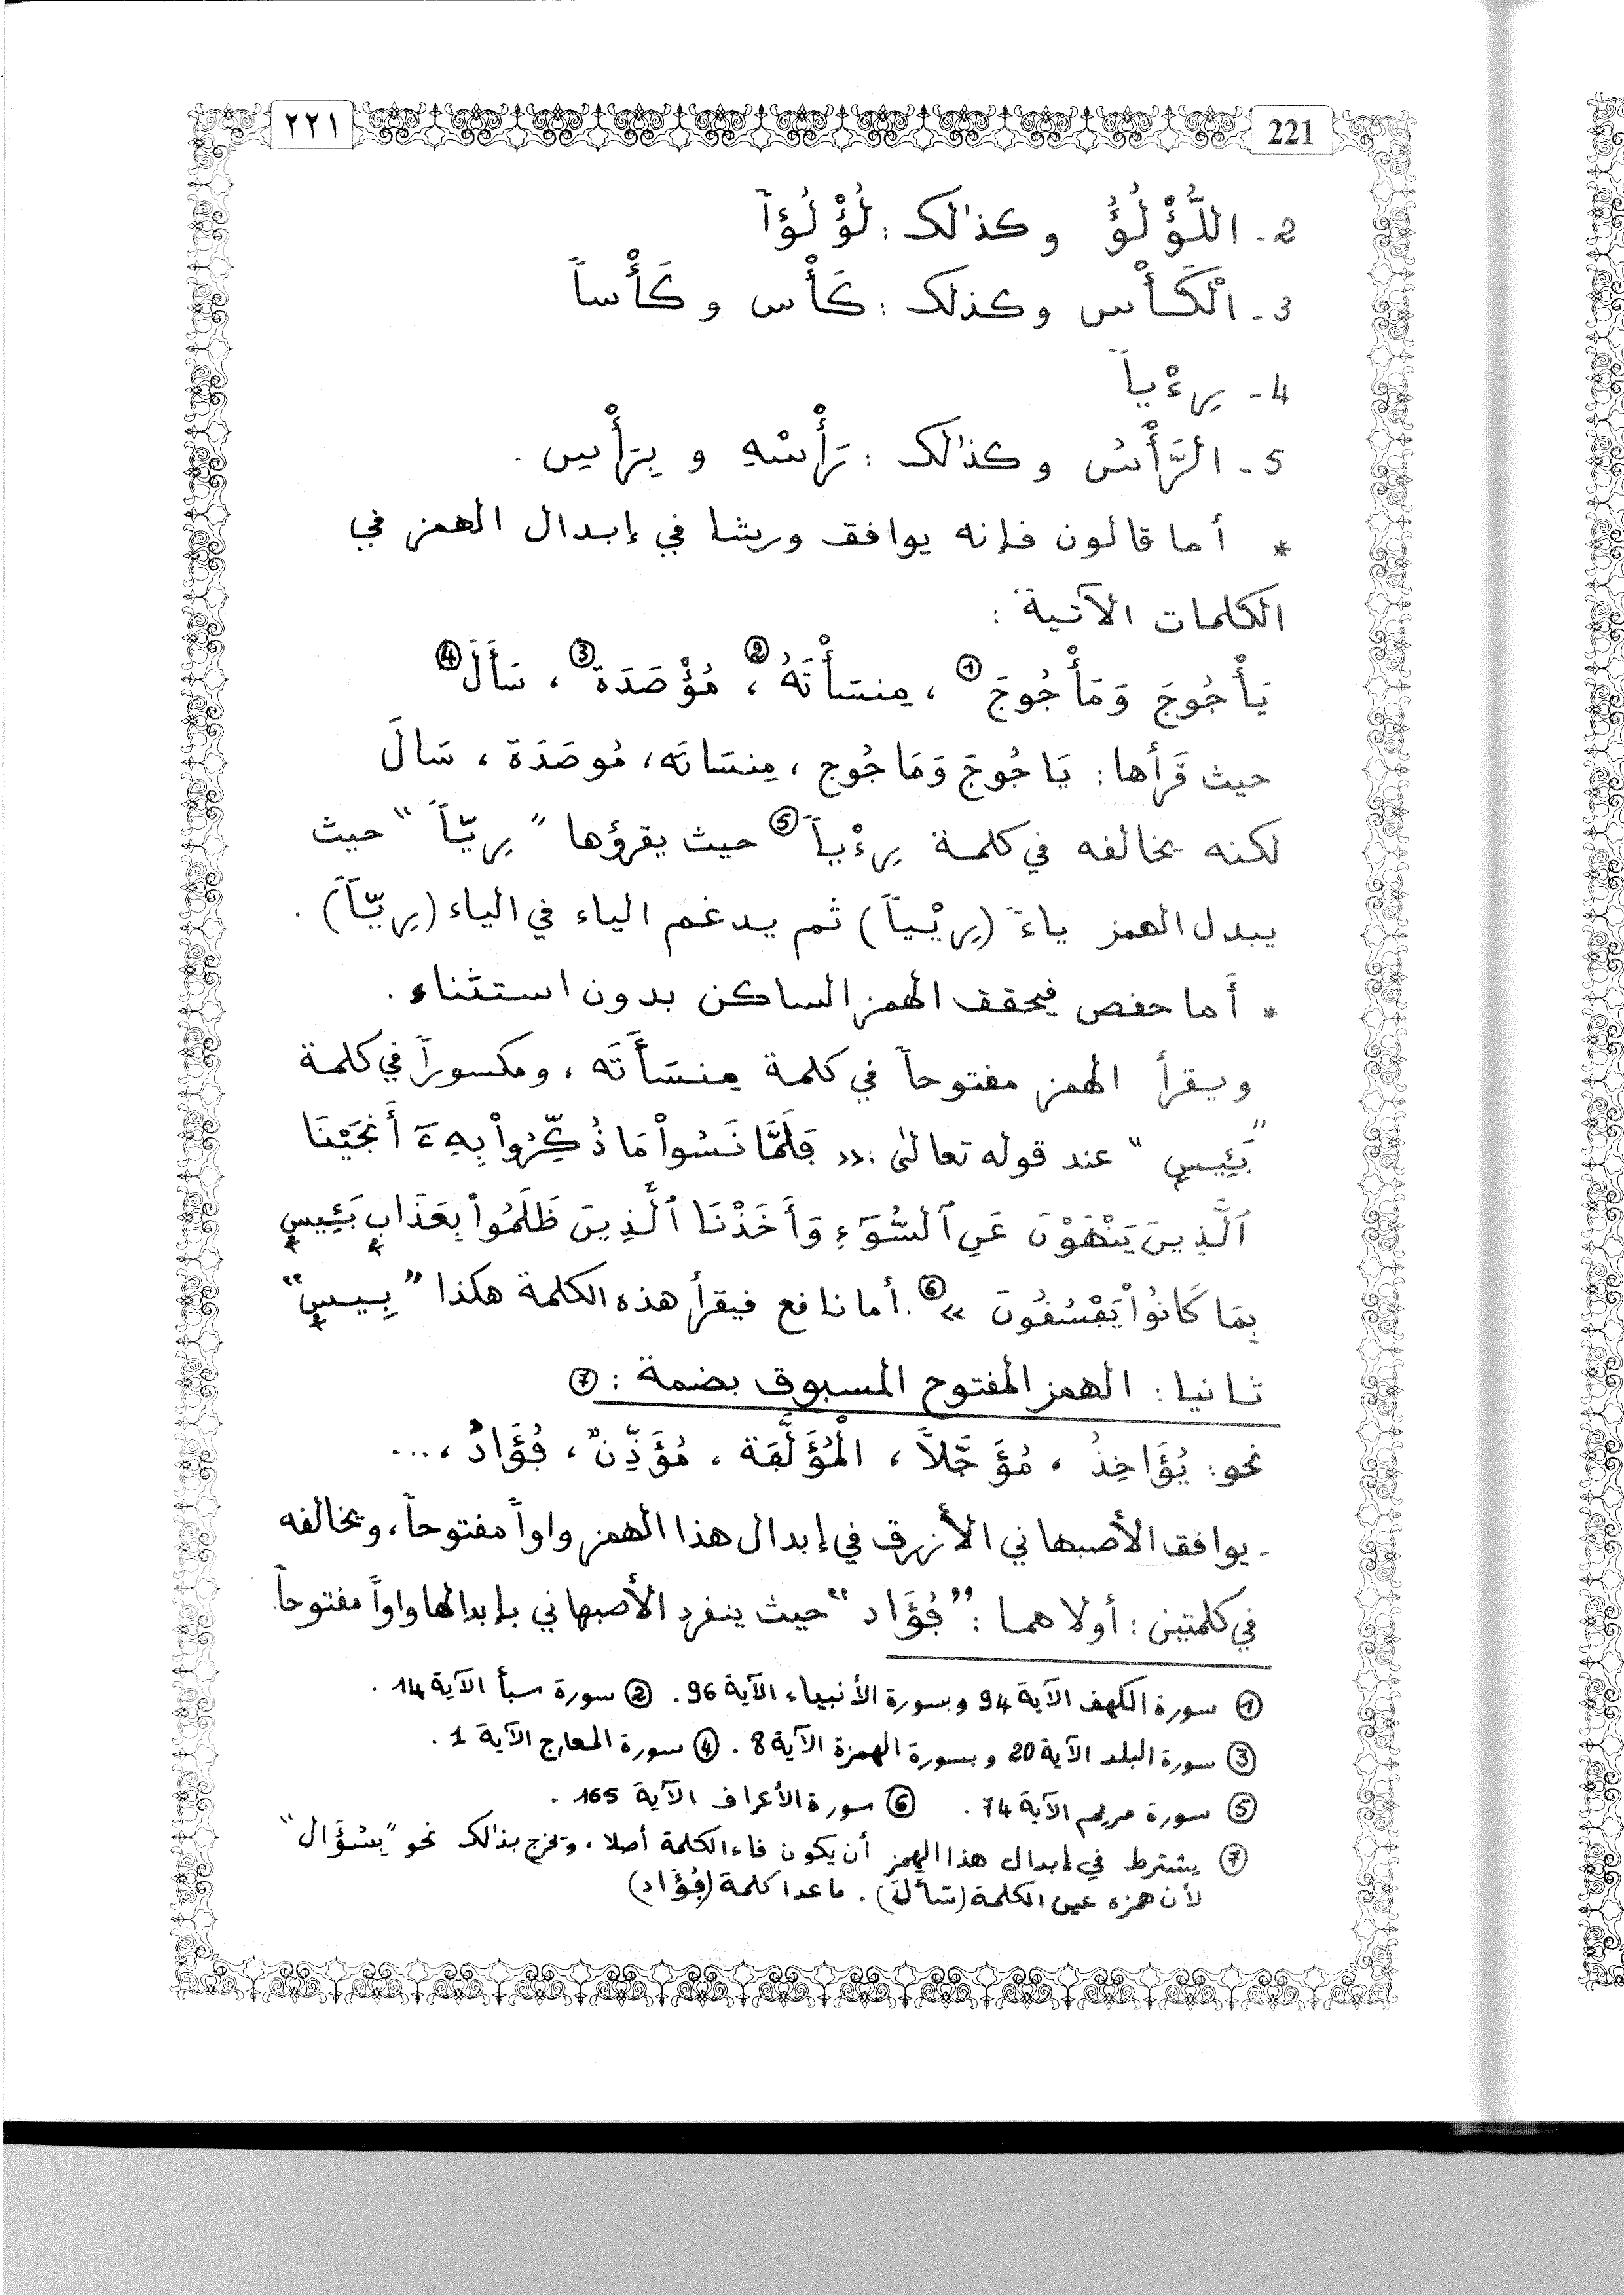 ٢٢١
221
2 - اللُّؤْلُؤُ وكذالك : لُؤْلُؤاً
3 - الْكَأْس وكذلك : كَأْس وكَأْساً
4 - رِءْياً
5 - الرَّأْسُ وكذالك : رَأْسِهِ و بِرَأْسِ .
* أما قالون فإنه يوافق ورشا في إبدال الهمز في
الكلمات الآتية :
يَأْجُوجَ وَمَأْجُوجَ ① ، مِنسَأْتَهُ ② ، مُؤْصَدَة ③ ، سَأَلَ ④
حيث قَرأها : يَاجُوجَ وَمَاجُوج ، مِنسَاتَه ، مُوصَدَة ، سَالَ
لكنه يخالفه في كلمة رِءْياً ⑤ حيث يقرؤها " رِيّاً " حيث
يبدل الهمز ياءً (رِيْياً) ثم يدغم الياء في الياء (رِيّاً) .
* أما حفص فيحقق الهمز الساكن بدون استثناء .
ويقرأ الهمز مفتوحاً في كلمة مِنسَأَتَه ، ومكسوراً في كلمة
" بَئِيسٍ " عند قوله تعالى : « فَلَمَّا نَسُواْ مَا ذُكِّرُواْ بِهِۦٓ أَنجَيْنَا
ٱلَّذِينَ يَنْهَوْنَ عَنِ ٱلسُّوٓءِ وَأَخَذْنَا ٱلَّذِينَ ظَلَمُواْ بِعَذَابٍ بَئِيسٍ
بِمَا كَانُواْ يَفْسُقُونَ » ⑥ . أما نافع فيقرأ هذه الكلمة هكذا " بِيسٍ "
ثانيا : الهمز المفتوح المسبوق بضمة : ⑦
نحو : يُؤَاخِذُ ، مُؤَجَّلاً ، الْمُؤَلَّفَة ، مُؤَذِّنٌ ، فُؤَادُ ، ...
- يوافق الأصبهاني الأزرق في إبدال هذا الهمز واواً مفتوحاً ، ويخالفه
في كلمتين : أولاهما : " فُؤَاد " حيث ينفرد الأصبهاني بإبدالها واواً مفتوحاً .
① سورة الكهف الآية 94 وبسورة الأنبياء الآية 96 . ② سورة سبأ الآية 14 .
③ سورة البلد الآية 20 وبسورة الهمزة الآية 8 . ④ سورة المعارج الآية 1 .
⑤ سورة مريم الآية 74 . ⑥ سورة الأعراف الآية 165 .
⑦ يشترط في إبدال هذا الهمز أن يكون فاء الكلمة أصلا ، ويخرج بذالك نحو " بِسُؤَال "
لأن همزه عين الكلمة (سَأَلَ) . ماعدا كلمة (فُؤَاد)